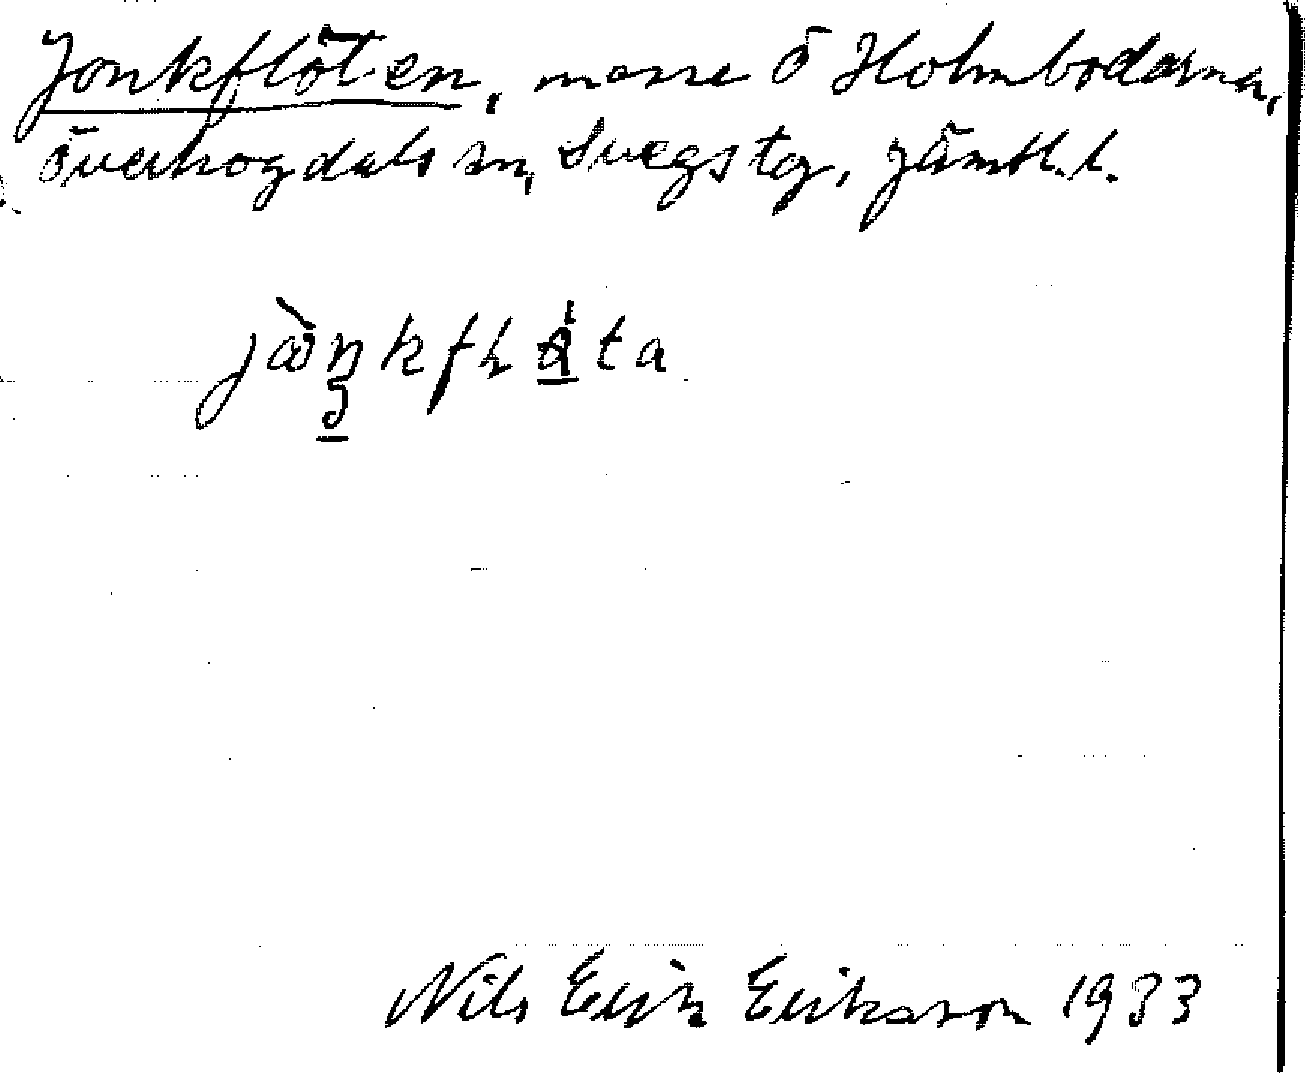 Jonkflöten, mosse ö Holmbodarna,
Överhogdals sn, Svegs tg, Jämtl. l.
Nils Erik Eriksson 1933